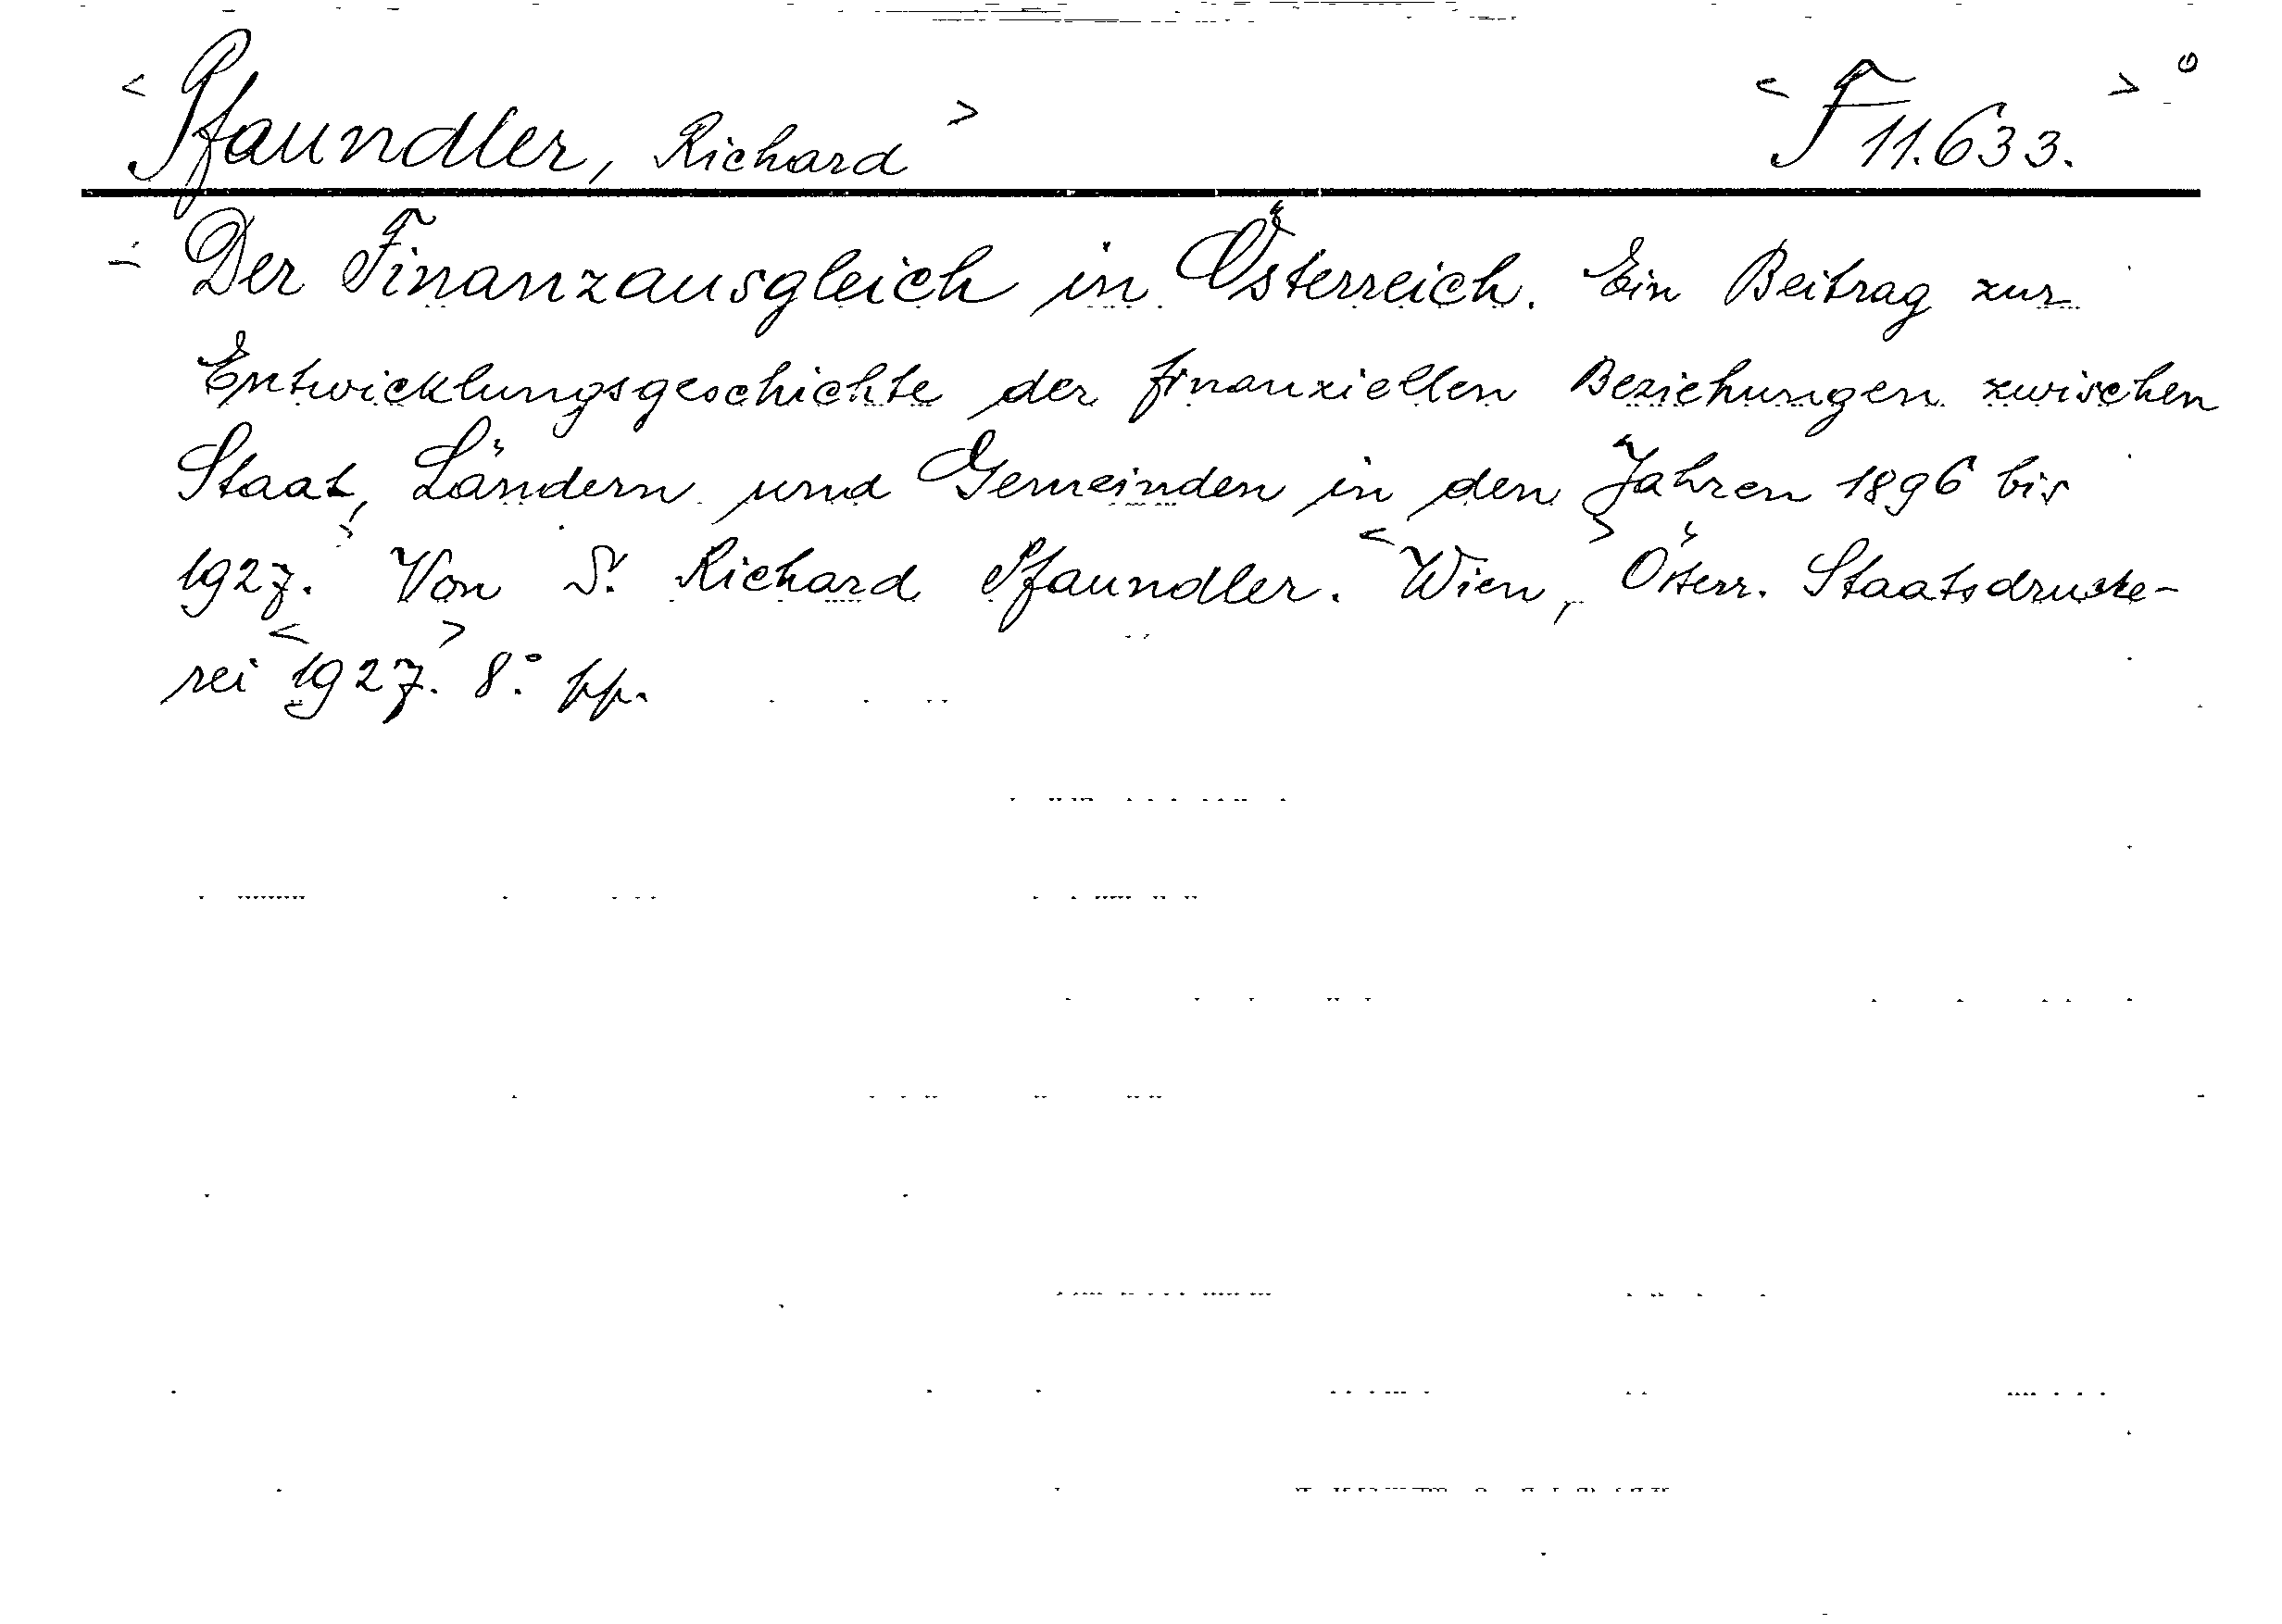 < Pfaundler, Richard > < F 11.633. > °
÷ Der Finanzausgleich in Österreich. Ein Beitrag zur
Entwicklungsgeschichte der finanziellen Beziehungen zwischen
Staat, Ländern und Gemeinden in den Jahren 1896 bis
1927. Von Richard Pfaundler. < Wien, > Österr. Staatsdrucke-
rei < 1927. > 8.° pp.